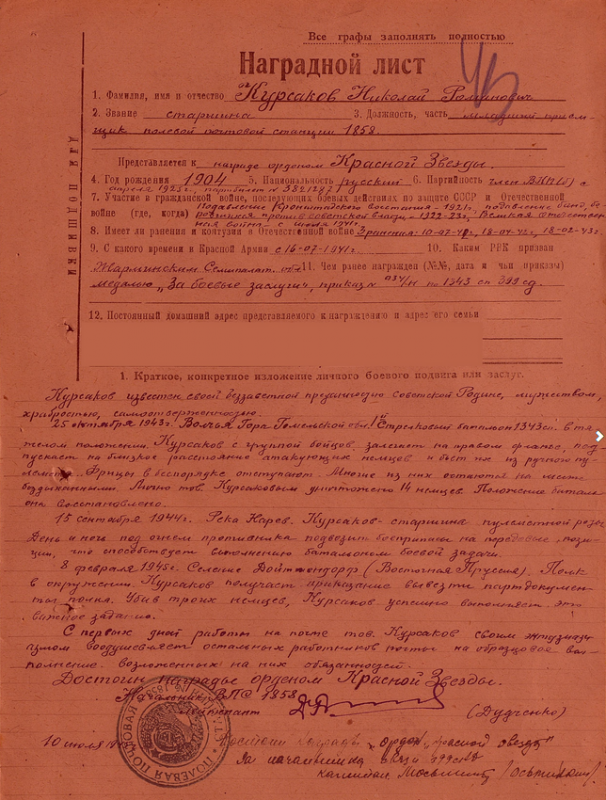 Все графы заполнять полностью
Наградной лист
1. Фамилия, имя и отчество Курсаков Николай Романович
2. Звание старшина 3. Должность, часть младший прием-
щик полевой почтовой станции 1858.
Представляется к награде орденом Красной Звезды.
4. Год рождения 1904 5. Национальность русский 6. Партийность член ВКП(б) с
апреля 1925г., партбилет № 3821287
7. Участие в гражданской войне, последующих боевых действиях по защите СССР и Отечественной
войне (где, когда) Подавление Кронштадтского восстания - 1921г., подавление банд,
против советской власти - 1922-23г., Великая отечествен-
ная война - с июля 1941г.
8. Имеет ли ранения и контузии в Отечественной войне 3 ранения: 18-04-42г., 18-02-43г.
9. С какого времени в Красной Армии с 16-07-1941г. 10. Каким РВК призван
Жарминским Семипалат. обл. 11. Чем ранее награжден (№№, дата и чьи приказы)
медалью „За боевые заслуги", приказ № 034/н по 1343 сп 399 сд.
12. Постоянный домашний адрес представляемого к награждению и адрес его семьи
ДЛЯ ПОДШИВКИ
1. Краткое, конкретное изложение личного боевого подвига или заслуг.
Курсаков известен своей беззаветной преданностью Советской Родине, мужеством,
храбростью, самоотверженностью.
25 октября 1943г. Волчья Гора Гомельской обл. Стрелковый батальон 1343сп. в тя-
желом положении. Курсаков с группой бойцов залегает на правом фланге, под-
пускает на близкое расстояние атакующих немцев и бьет их из ручного пу-
лемета. Фрицы в беспорядке отступают. Многие из них остаются на месте
бездыханными. Лично тов. Курсаковым уничтожено 14 немцев. Положение баталь-
она восстановлено.
15 сентября 1944г. Река Нарев. Курсаков - старшина пулеметной роты.
День и ночь под огнем противника подвозит боеприпасы на передовые пози-
ции, что способствует выполнению батальоном боевой задачи.
8 февраля 1945г. Селение Войтмендорф (Восточная Пруссия). Полк
в окружении. Курсаков получает приказание вывезти партдокумен-
ты полка. Убив троих немцев, Курсаков успешно выполняет от-
ветственное задание.
С первых дней работы на почте тов. Курсаков своим энтузиаз-
мом воодушевляет остальных работников почты на образцовое вы-
полнение возложенных на них обязанностей.
Достоин награды орденом Красной Звезды.
Начальник ППС 1858
лейтенант (Дудченко)
10 июля 1945г. Достоин награды орден „Красной Звезды"
За начальника связи 399 сд
капитан
ПОЛЕВАЯ ПОЧТОВАЯ СТАНЦИЯ